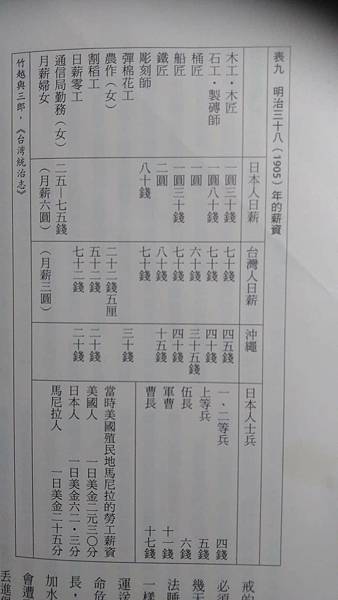 表九　明治三十八（1905）年的薪資
日本人日薪　台灣人日薪　沖繩　日本人士兵
木工・木匠　一圓三十錢　七十錢　四五錢　一、二等兵　四錢
石工・製磚師　一圓八十錢　七十錢　四十錢　上等兵　五錢
桶匠　一圓　六十錢　三十五錢　伍長　六錢
船匠　一圓三十錢　七十錢　四十錢　軍曹　十一錢
鐵匠　二圓　八十錢　十五錢　曹長　十七錢
雕刻師　八十錢　七十錢
彈棉花工　三十錢　當時美國殖民地馬尼拉的勞工薪資
農作（女）　二十二錢五厘
割稻工　五十二錢　二十錢　美國人　一日美金二元三〇分
日薪零工　七十二錢　二十錢　日本人　一日美金六二・三分
通信局勤務（女）　二五—七五錢　馬尼拉人　一日美金二十五分
月薪婦女　（月薪六圓）　（月薪三圓）
竹越與三郎，《台湾統治志》
戒的
必須
幾天
法睡
一樣
運送
命危
長，
加水
會遭
丟進